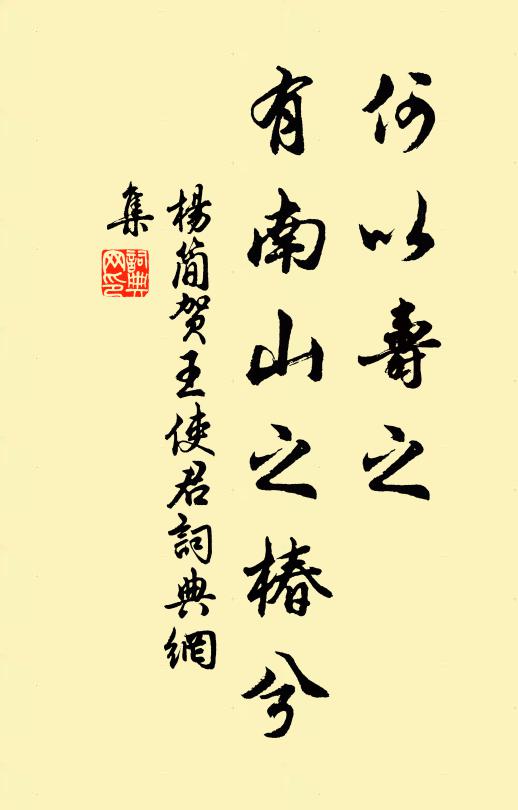 何以壽之
有南山之椿兮
楊簡賀王使君詞典網
集
詞典
网印